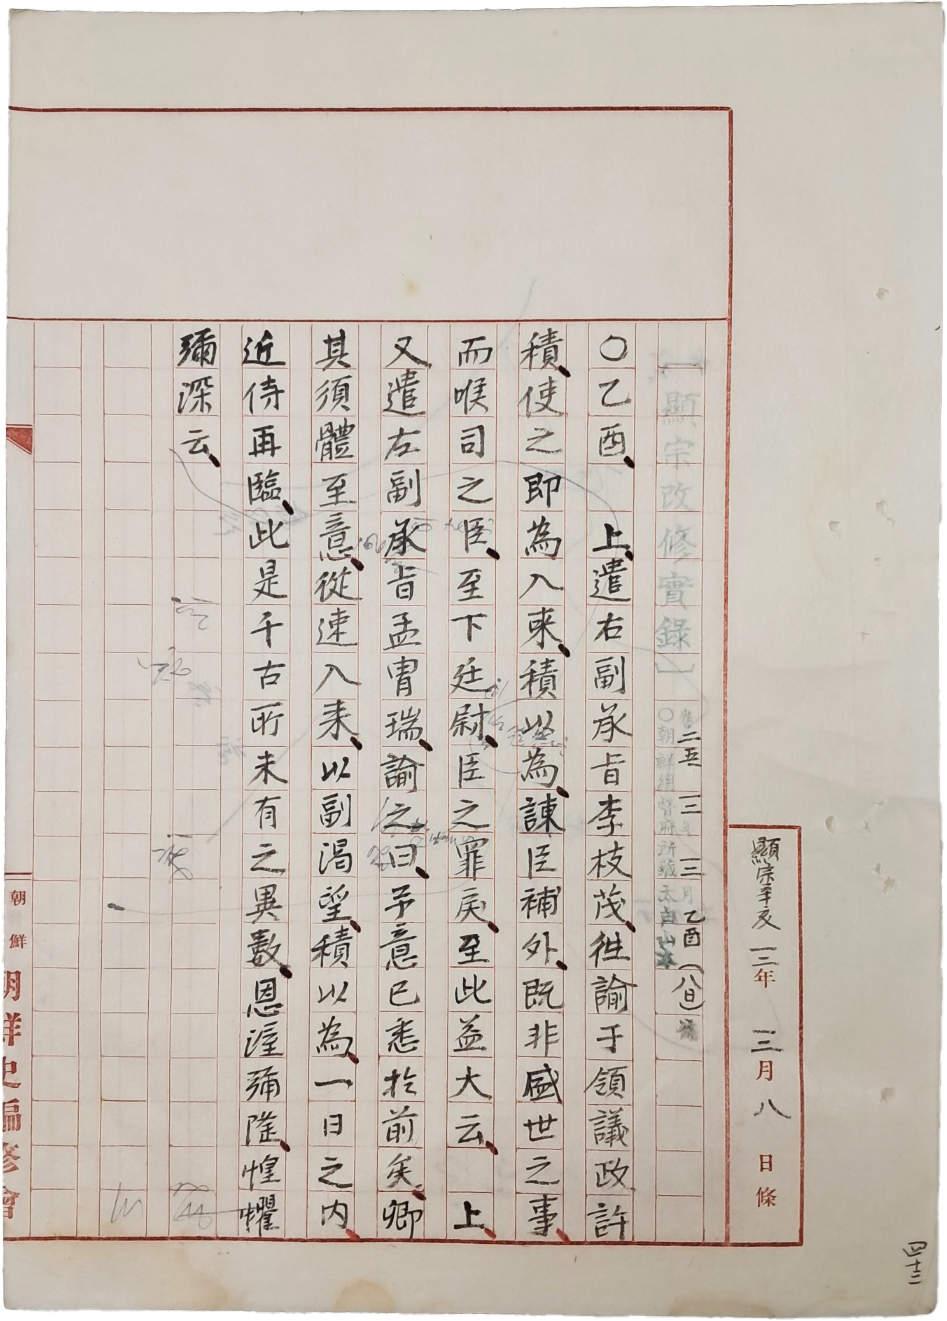 顯宗辛亥 一二年 三月八日條
【顯宗改修實錄】
卷二五 一二年 三月乙酉(八日)條
〇朝鮮總督府所藏太白山本
〇乙酉、 上、遣右副承旨李枝茂、徃諭于領議政許
積、使之即為入來、積以為、諫臣補外、既非盛世之事、
而喉司之臣、至下廷尉、臣之罪戾、至此益大云、 上、
又遣左副承旨孟胄瑞、諭之曰、予意已悉於前矣、卿
其須體至意、從速入来、以副渴望、積以為、一日之內、
近侍再臨、此是千古所未有之異數、恩渥彌隆、惶懼
彌深云、
朝鮮
朝鮮史編修會
四十二